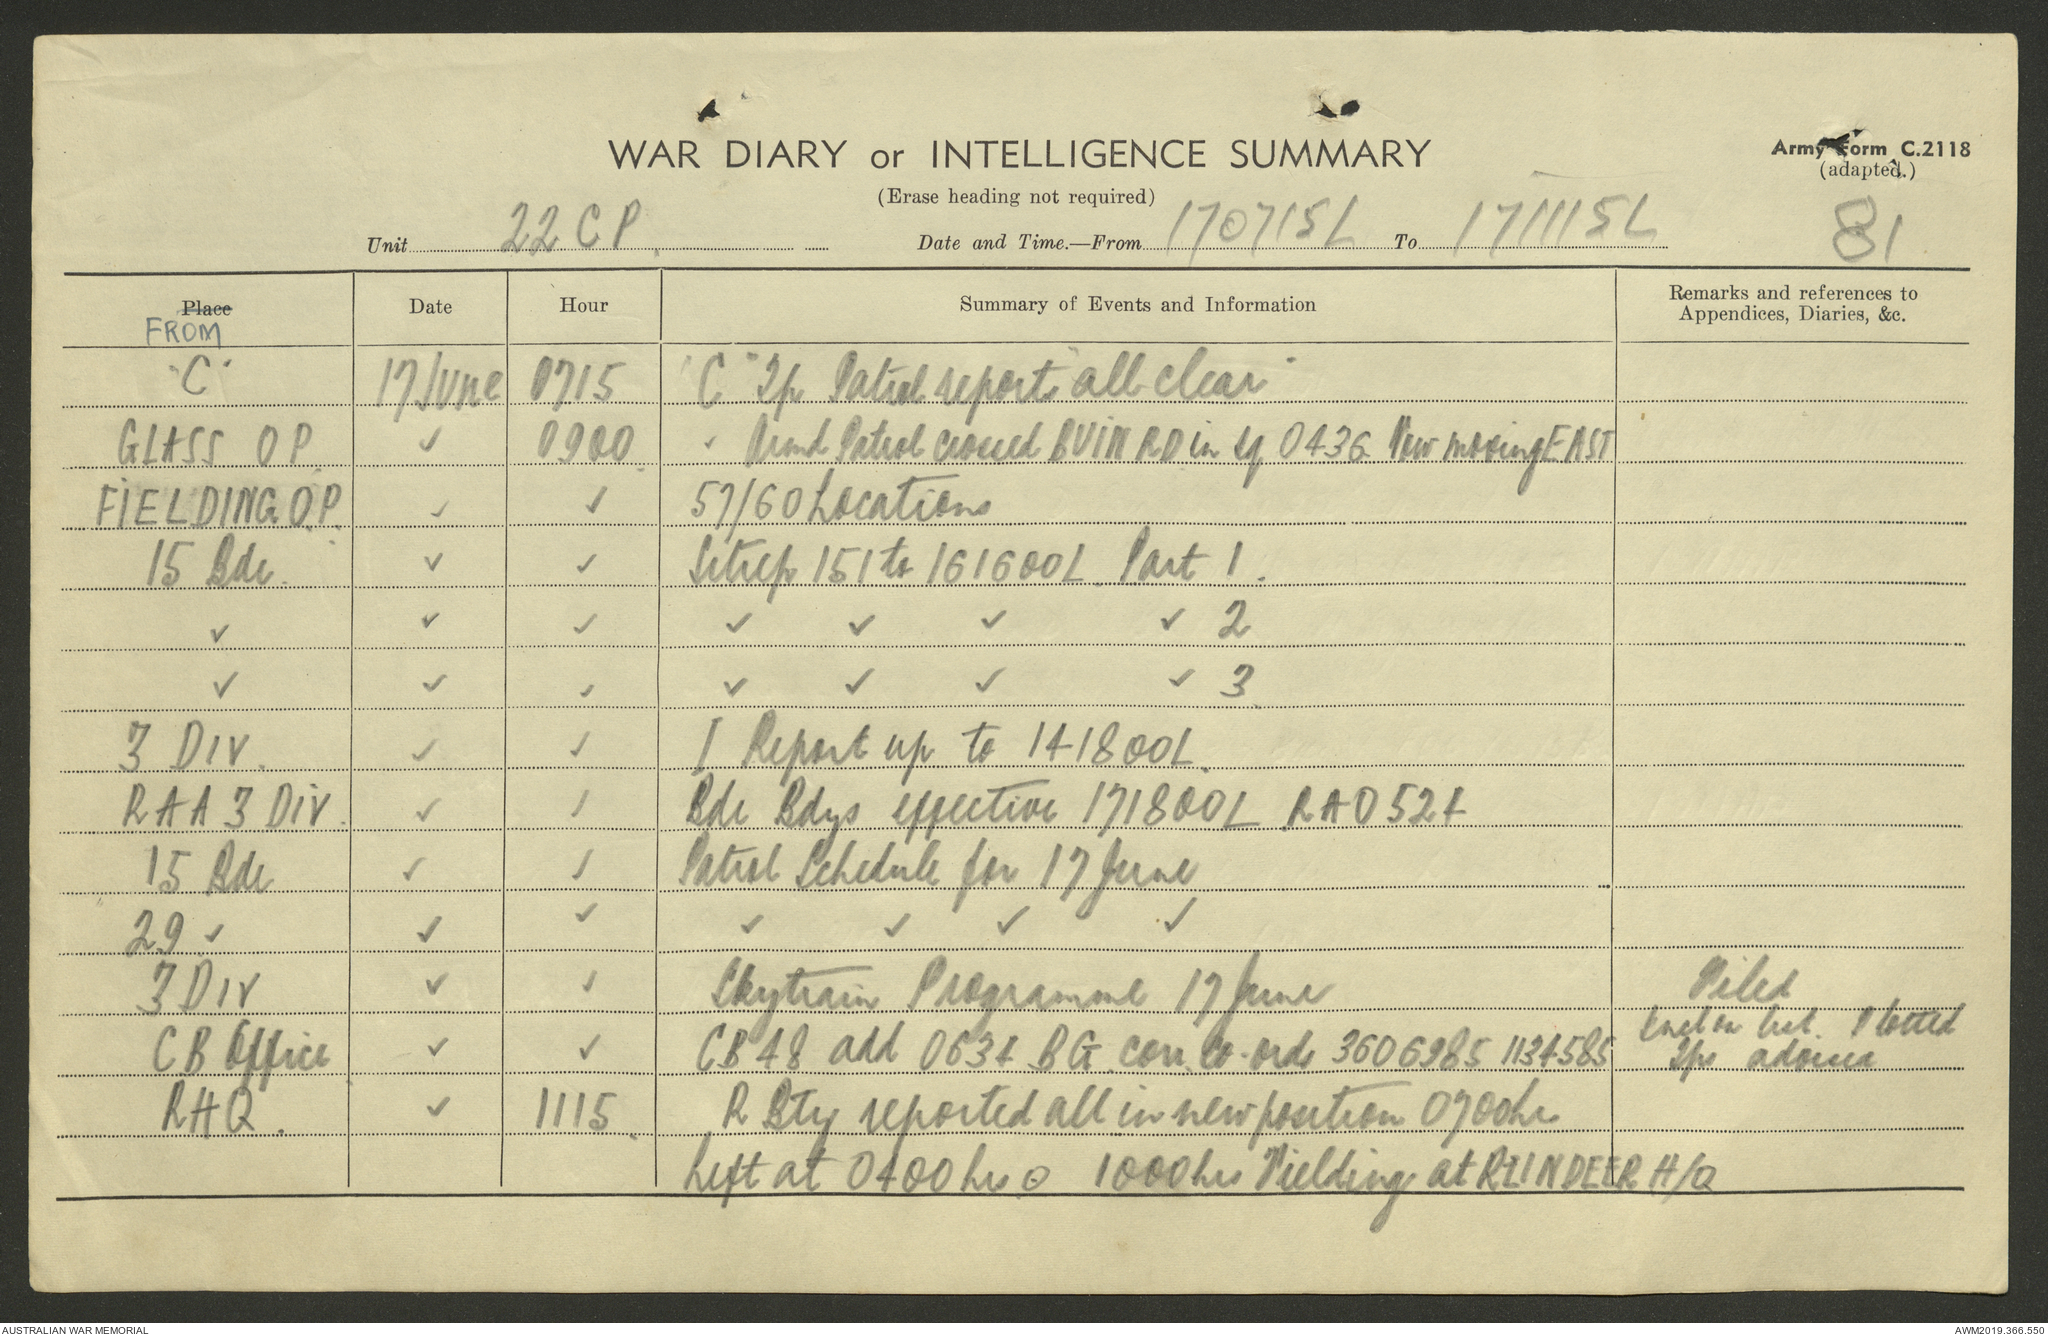 WAR DIARY or INTELLIGENCE SUMMARY
Army Form C.2118
(adapted.)
(Erase heading not required)
Unit 22 CP. Date and Time.—From 170715L To 171115L 81
Place Date Hour Summary of Events and Information Remarks and references to Appendices, Diaries, &c.
FROM
"C" 17 June 0715 "C" Tp Patrol reports "all clear"
GLASS OP. ✓ 0900. ✓ Patrol crossed BUIN RD in sq 0436 Now moving EAST
FIELDING O.P. ✓ ✓ 57/60 Locations
15 Bde. ✓ ✓ Sitrep 151 to 161600L. Part 1.
✓ ✓ ✓ ✓ ✓ ✓ ✓ 2
✓ ✓ ✓ ✓ ✓ ✓ ✓ 3
3 DIV. ✓ ✓ I Report up to 141800L.
RAA 3 DIV. ✓ ✓ Bde Bdys effective 171800L RAO524
15 Bde ✓ ✓ Patrol Schedule for 17 June
29 ✓ ✓ ✓ ✓ ✓ ✓ ✓
3 DIV ✓ ✓ Skytrain Programme 17 June Filed
CB Office ✓ ✓ CB 48 add 0634 BG corr co-ords 3606985 1134585 list. Plotted
Tps advised
RHQ. ✓ 1115. R Bty reported all in new position 0700hr
Left at 0400 hrs. 1000 hrs Fielding at REINDEER H/Q
AUSTRALIAN WAR MEMORIAL
AWM2019.366.550